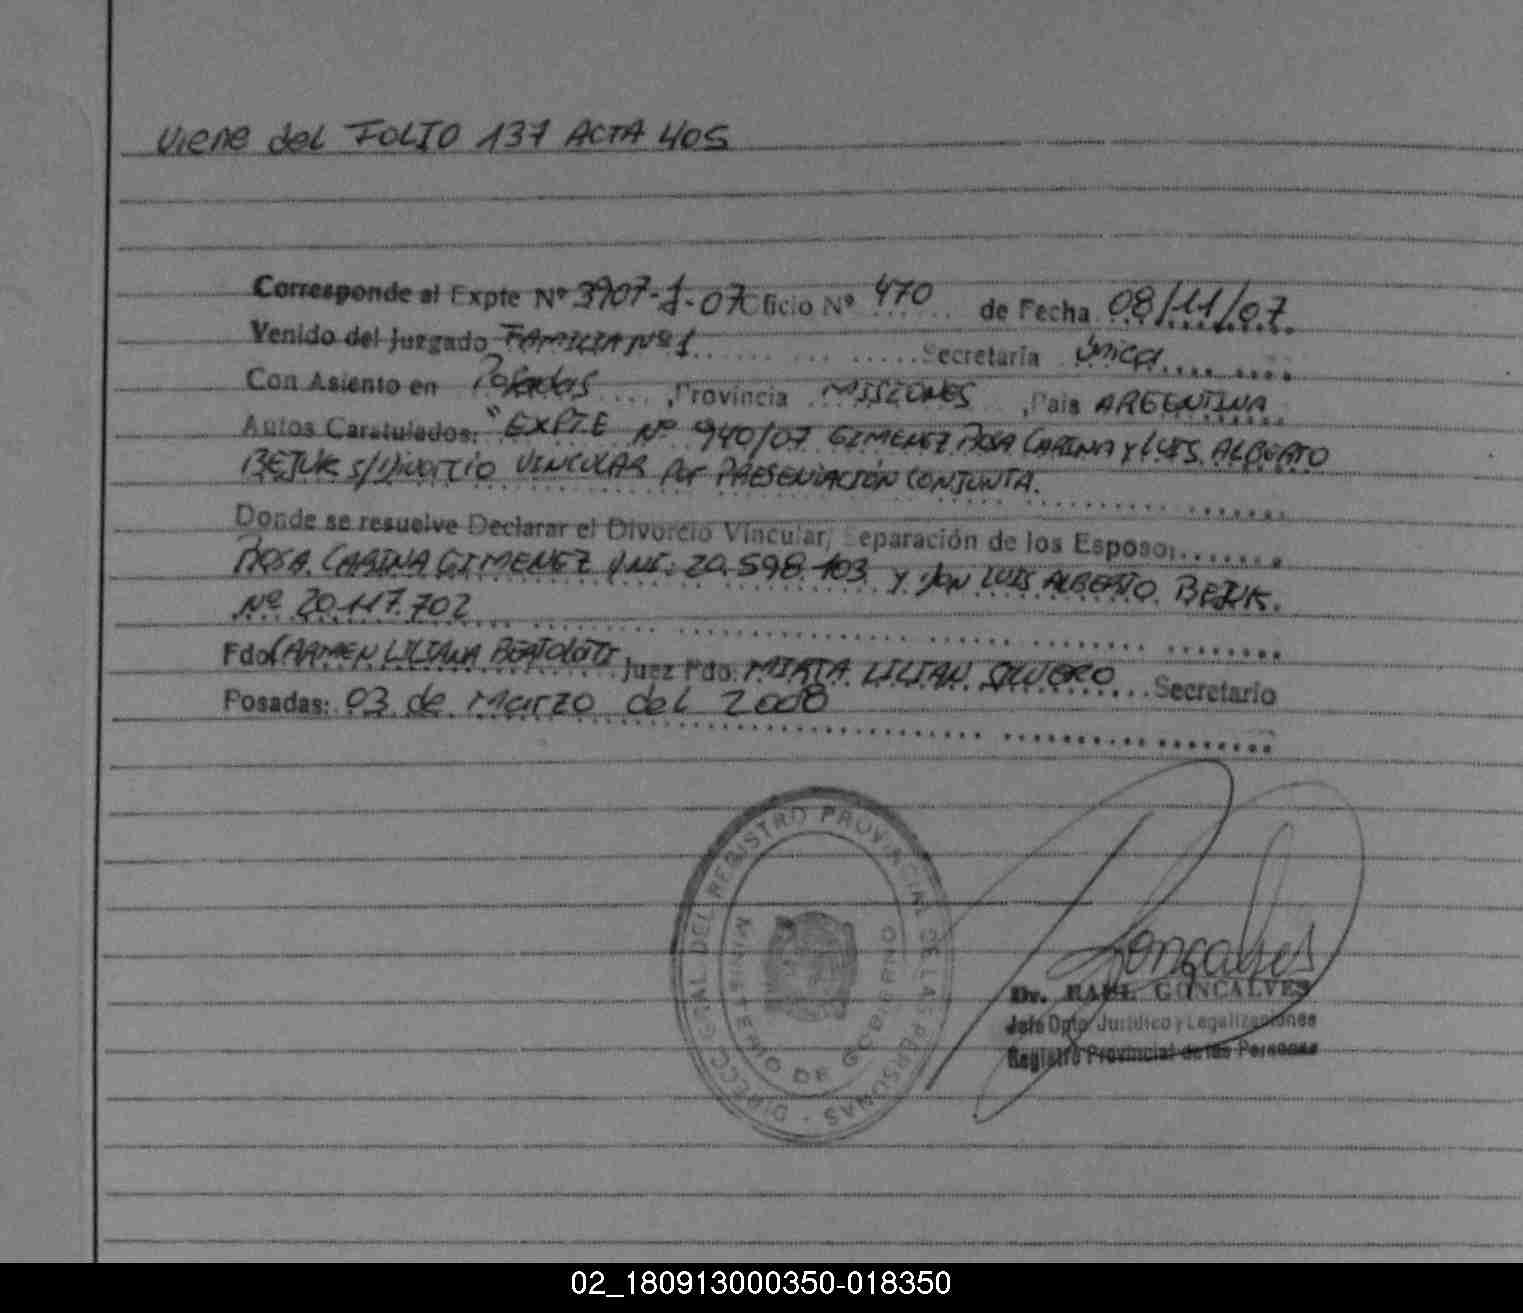 Viene del FOLIO 137 ACTA 405
Corresponde al Expte Nº 3907-J-07 Oficio Nº 470 de Fecha 08/11/07
Venido del Juzgado FAMILIA Nº 1 Secretaría Única
Con Asiento en Posadas, Provincia MISIONES, Pais ARGENTINA
Autos Caratulados: "EXPTE Nº 940/07 GIMENEZ ROSA CARINA y LUIS ALBERTO
BEJUK s/Divorcio VINCULAR Por PRESENTACIÓN CONJUNTA.
Donde se resuelve Declarar el Divorcio Vincular, Separación de los Esposos
ROSA CARINA GIMENEZ DNI: 20.598.103 y don LUIS ALBERTO BEJUK.
Nº 20.117.702
Fdo. CARMEN LILIANA Juez Fdo: MIRTA LILIAN SILVERO Secretario
Posadas: 03 de Marzo del 2008
DIRECC. GRAL. DEL REGISTRO PROVINCIAL DE LAS PERSONAS
MINISTERIO DE GOBIERNO
Gonçalves
Dr. RAUL GONCALVES
Jefe Dpto. Jurídico y Legalizaciones
Registro Provincial de las Personas
02_180913000350-018350